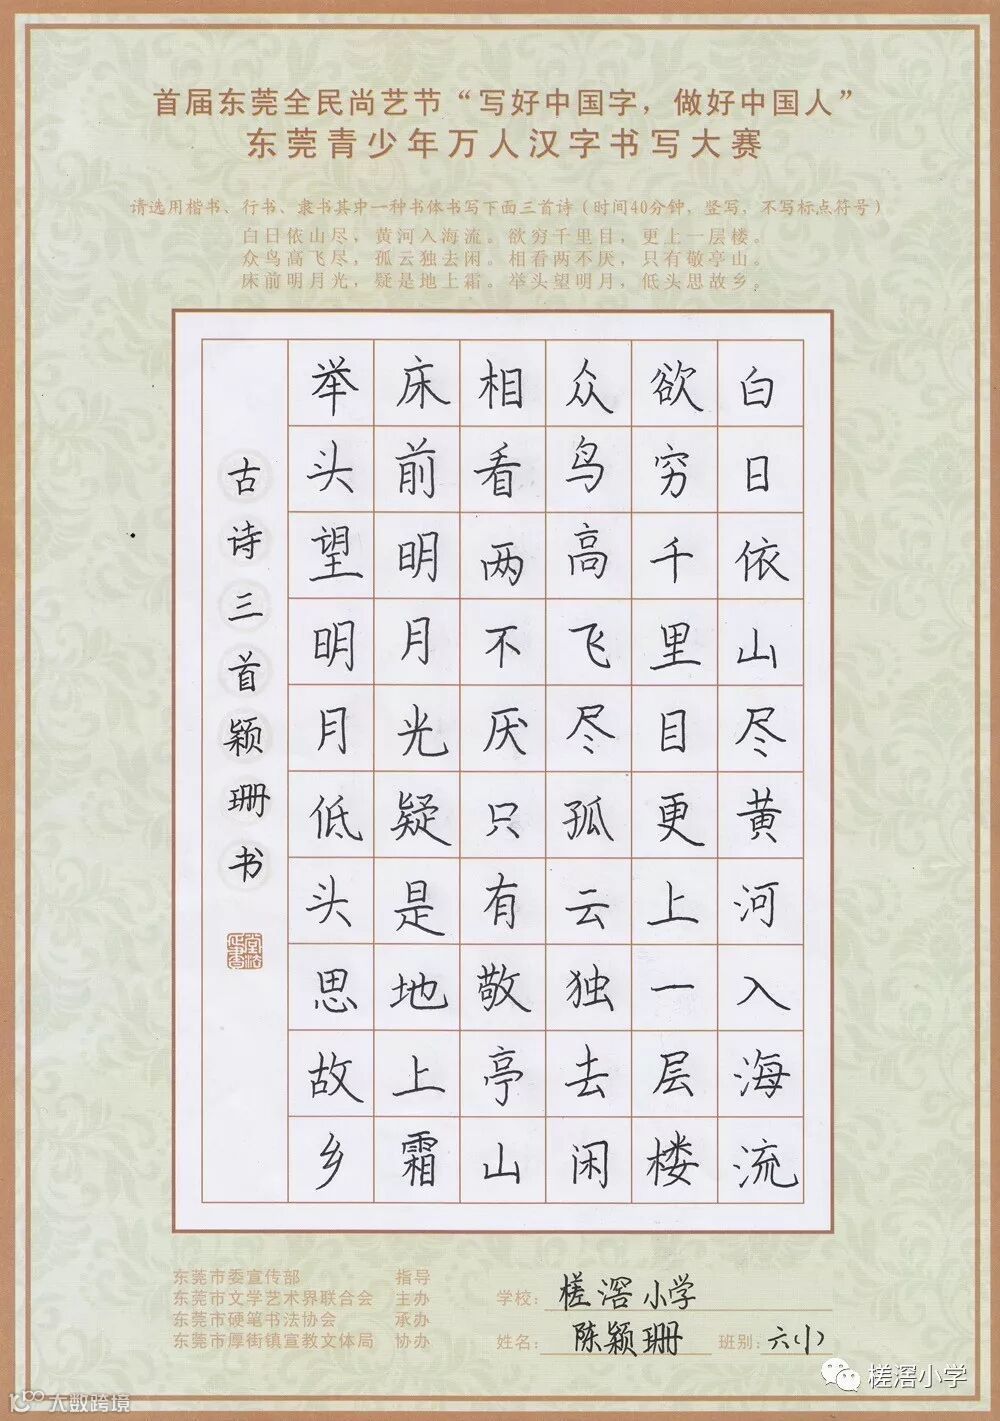 首届东莞全民尚艺节“写好中国字，做好中国人”
东莞青少年万人汉字书写大赛
请选用楷书、行书、隶书其中一种书体书写下面三首诗（时间40分钟，竖写，不写标点符号）
白日依山尽，黄河入海流。欲穷千里目，更上一层楼。
众鸟高飞尽，孤云独去闲。相看两不厌，只有敬亭山。
床前明月光，疑是地上霜。举头望明月，低头思故乡。
白日依山尽黄河入海流
欲穷千里目更上一层楼
众鸟高飞尽孤云独去闲
相看两不厌只有敬亭山
床前明月光疑是地上霜
举头望明月低头思故乡
古诗三首颖珊书
东莞市委宣传部 指导
东莞市文学艺术界联合会 主办
东莞市硬笔书法协会 承办
东莞市厚街镇宣教文体局 协办
学校：槎滘小学
姓名：陈颖珊 班别：六(1)
槎滘小学
大数跨境